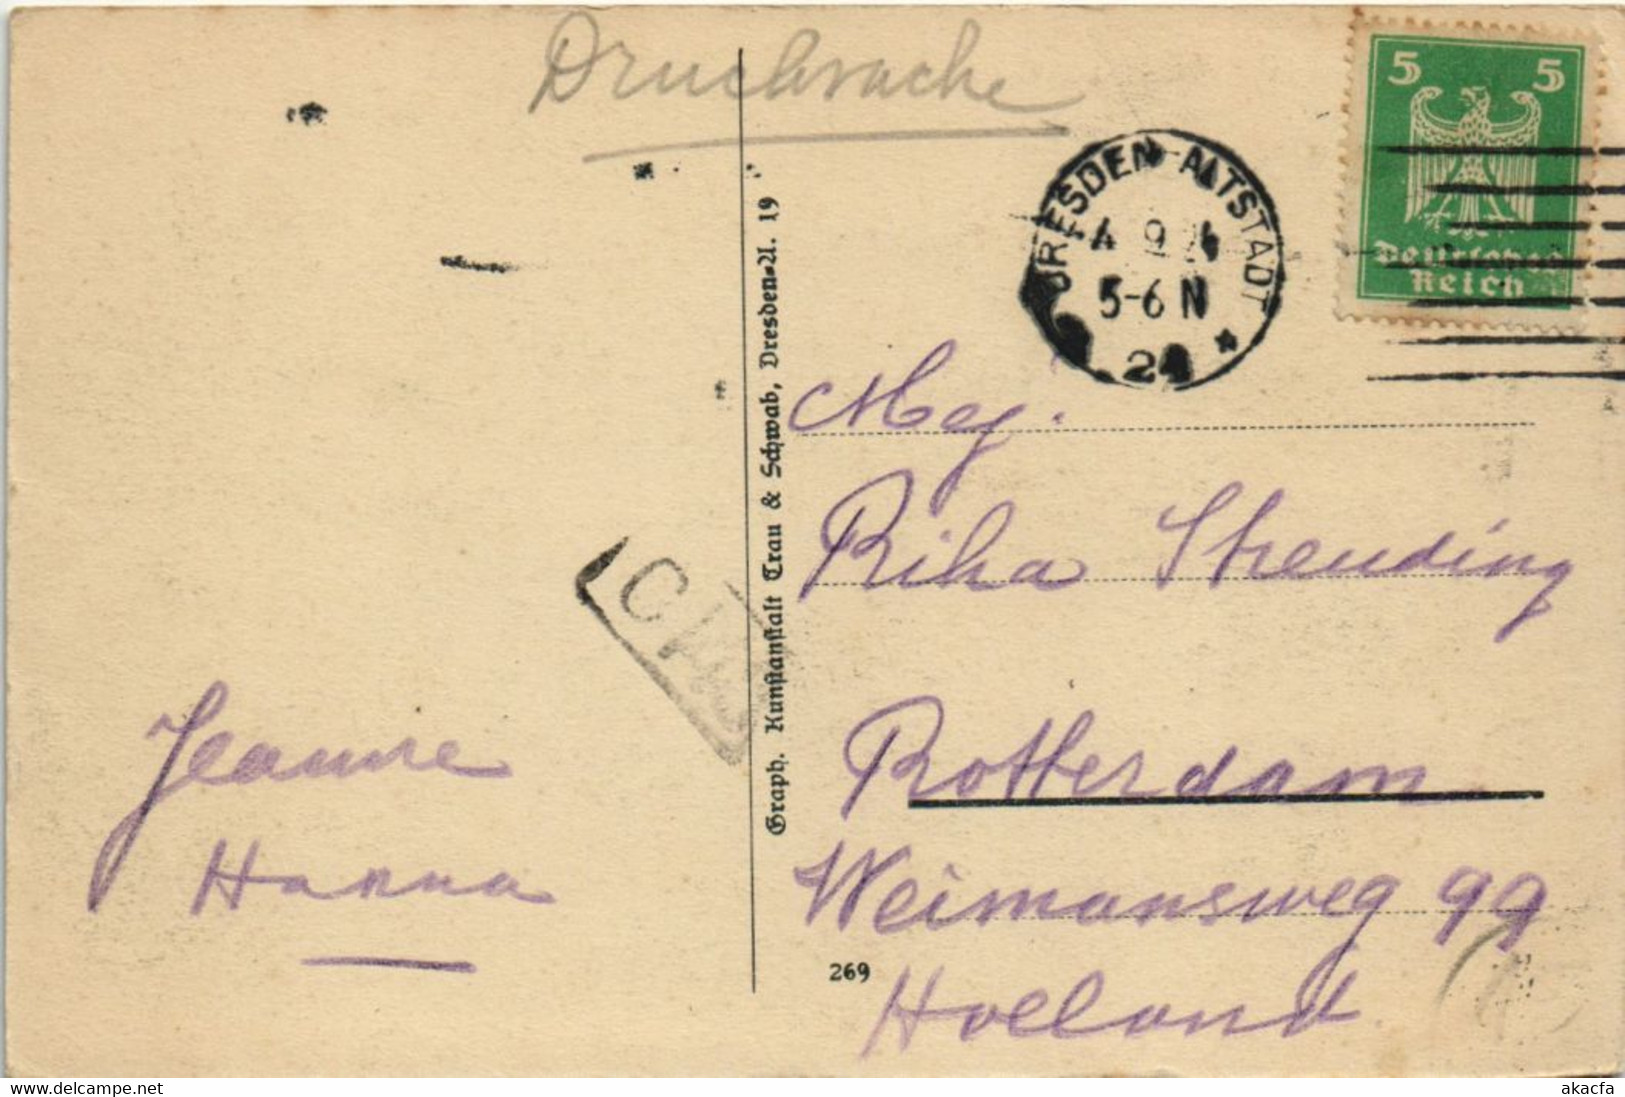 Drucksache
5 5
Deutsches
Reich
DRESDEN ALTSTADT
4 9 24
5-6 N
* 24
Mej.
Riha Streuding
Rotterdam
Weimansweg 99
Holland
Jeanne
Hanna
Graph. Kunstanstalt Trau & Schwab, Dresden-A. 19
269
akacfa
www.delcampe.net